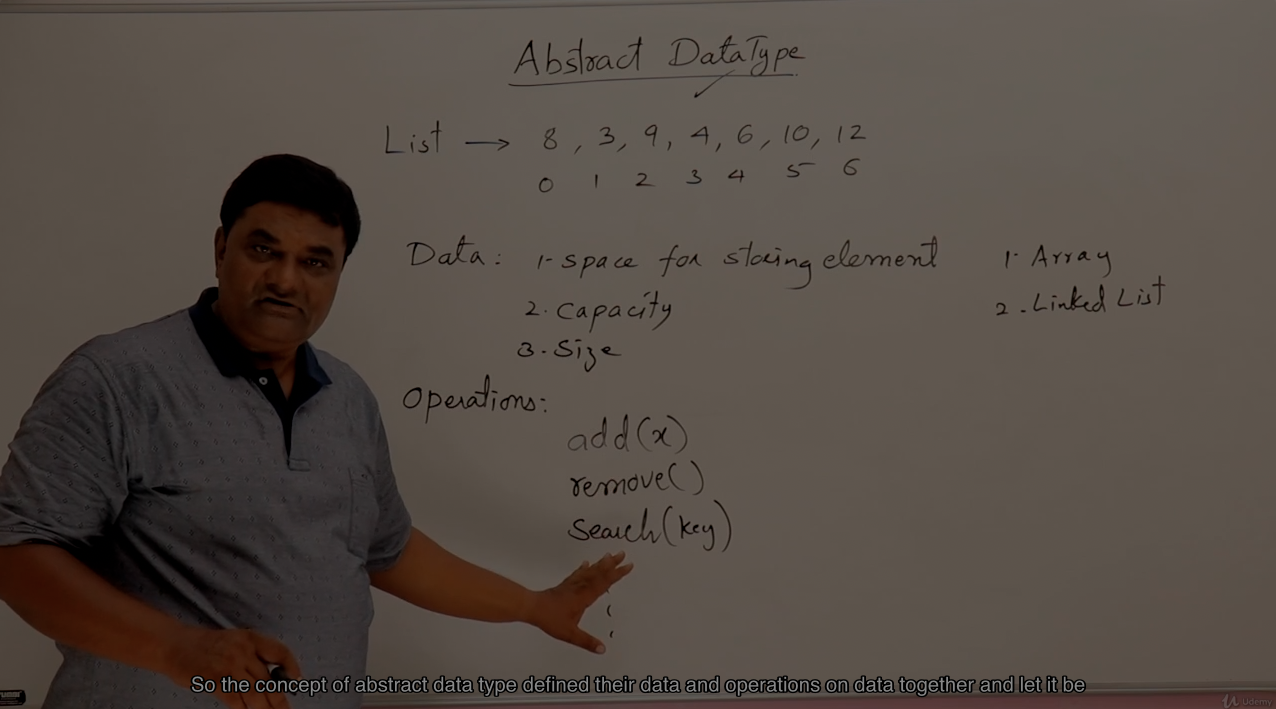 Abstract DataType
List → 8, 3, 9, 4, 6, 10, 12
0 1 2 3 4 5 6
Data: 1- space for storing element
2. Capacity
3. Size
1- Array
2. Linked List
Operations:
add(x)
remove()
Search(key)
So the concept of abstract data type defined their data and operations on data together and let it be
Udemy